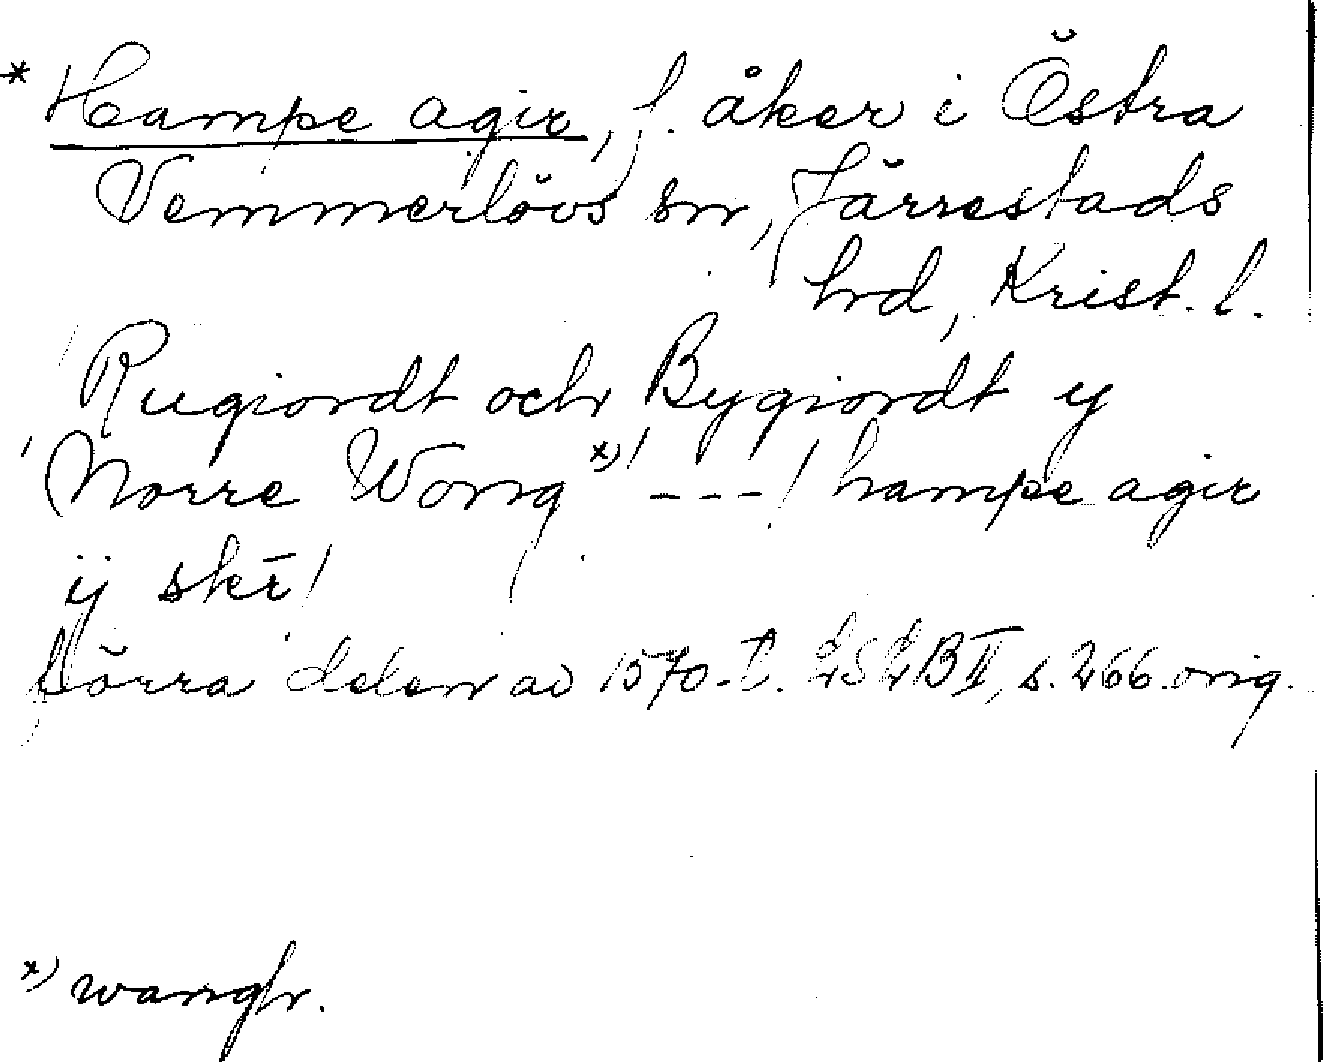 * Hampe agir, f. åker i Östra
Vemmerlövs sn, Järrestads
hrd, Krist. l.
Rugiordt och Bygiordt y
Norre Wong x) / - - - / hampe agir
ij skr̄ /
förra delen av 1570-t. LSLB II, s. 266. orig.
x) wangh.